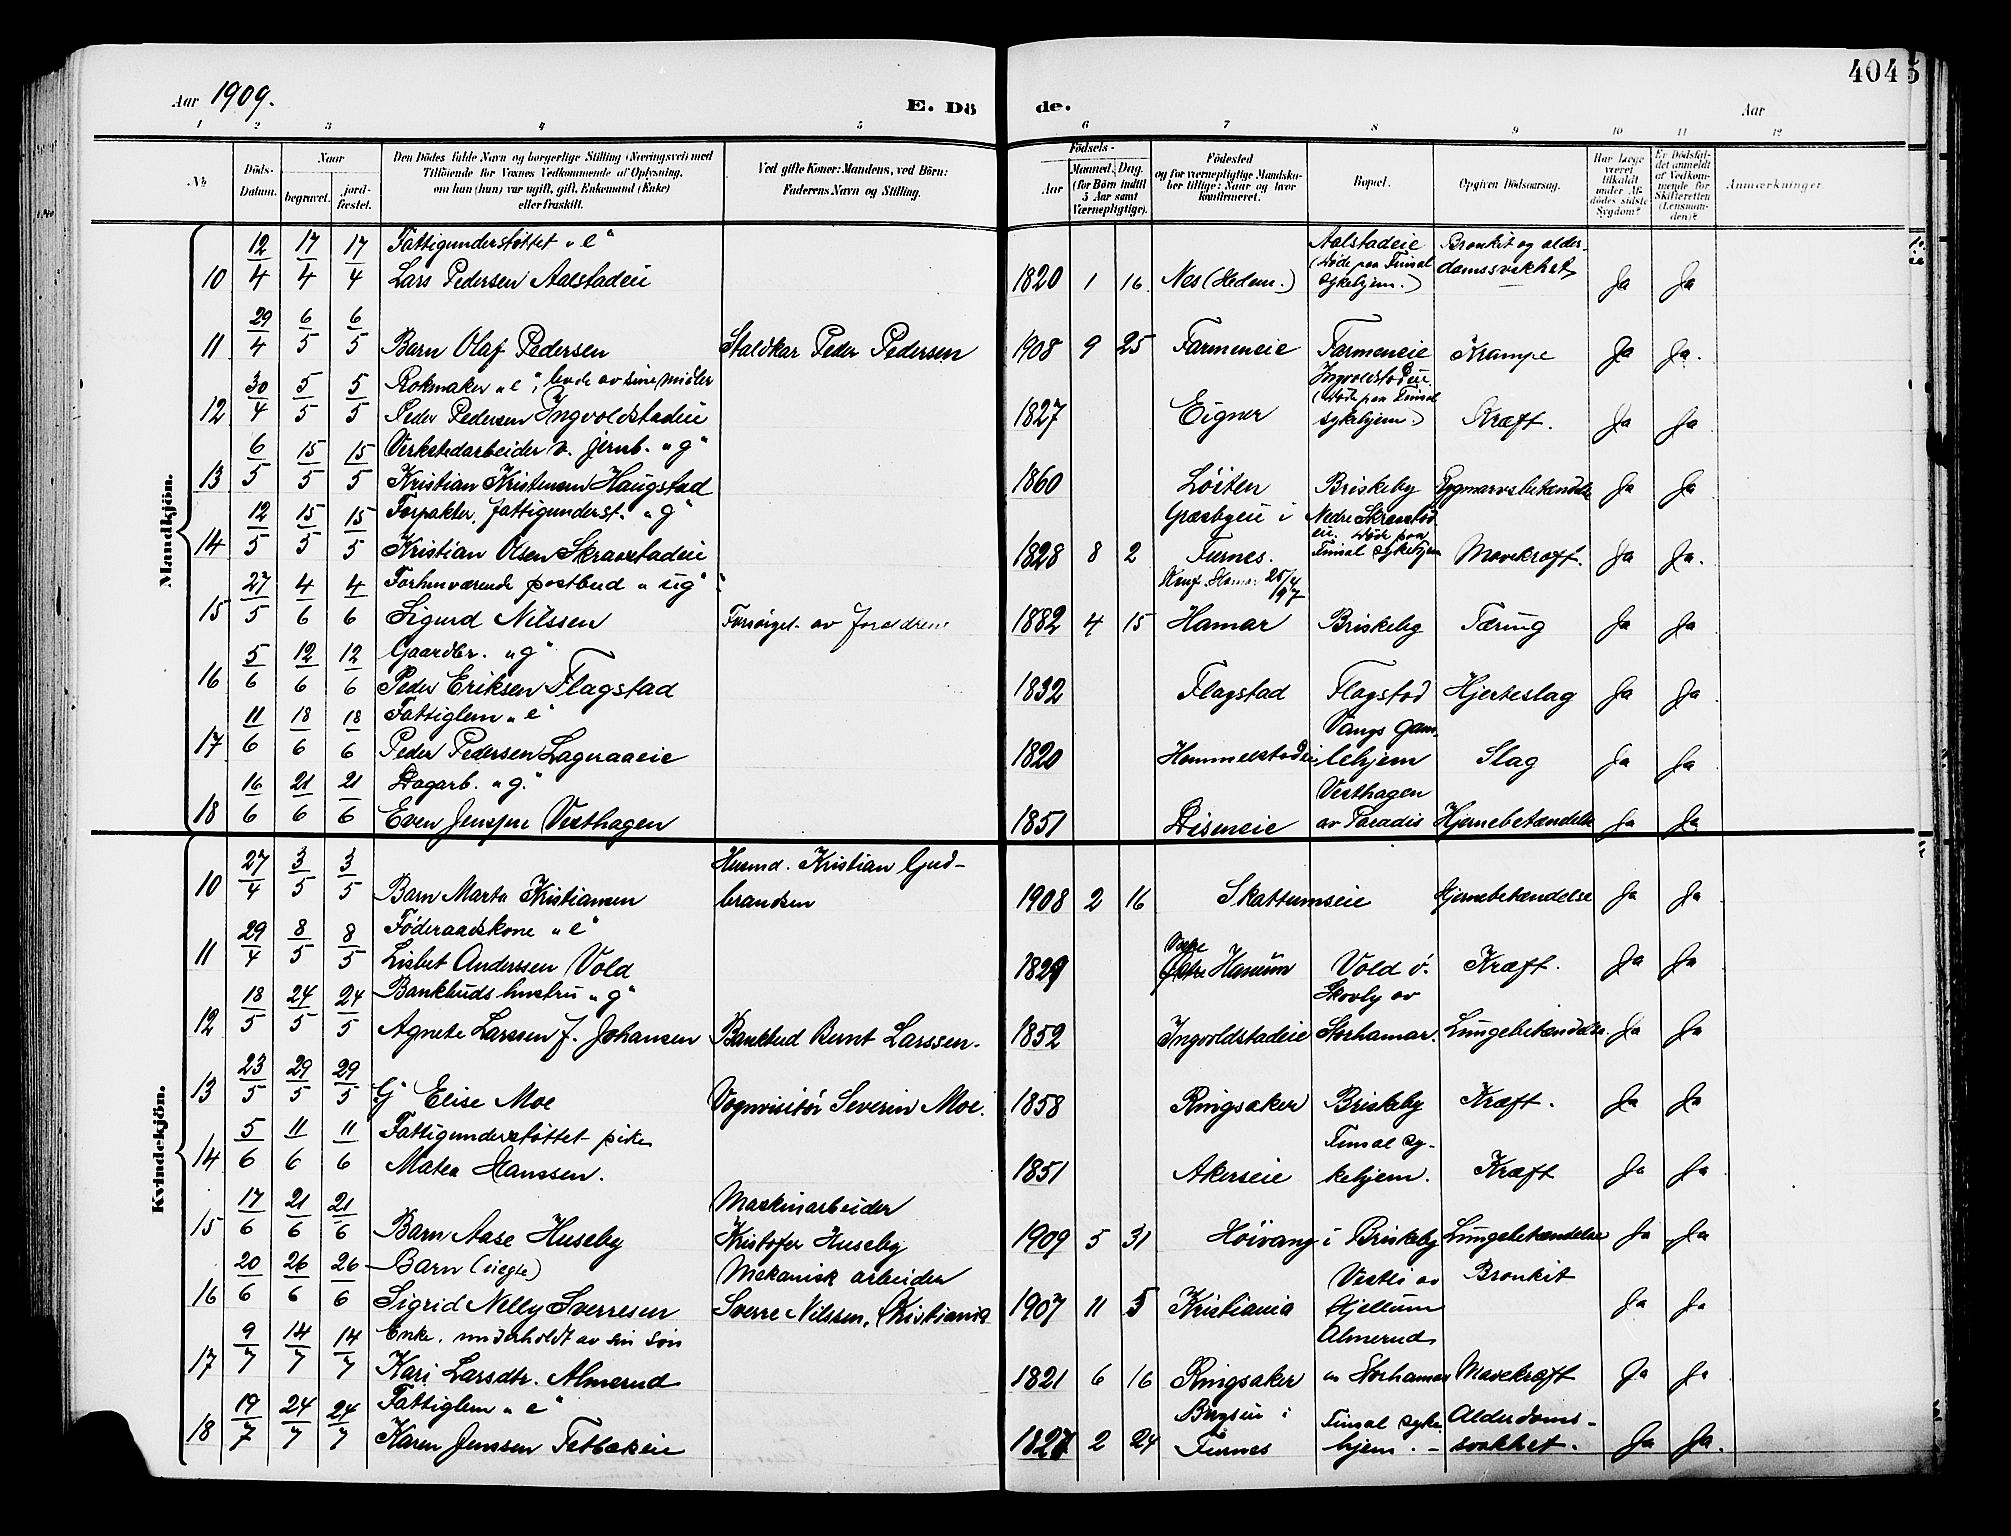 404 5
Aar 1909.
E. Dö de.
Aar
1 2 3 4 5 6 7 8 9 10 11 12
No.
Döds-Datum.
Naar
begravet.
jord-fæstet.
Den Dödes fulde Navn og borgerlige Stilling (Næringsvei) med
Tilföiende for Voxnes Vedkommende af Oplysning,
om han (hun) var ugift, gift, Enkemand (Enke)
eller fraskilt.
Ved gifte Koner: Mandens, ved Börn:
Faderens Navn og Stilling.
Födsels-
Aar
Maaned. Dag.
(for Börn indtil
5 Aar samt
Værnepligtige).
Födested
og for værnepligtige Mandska-
ber tillige: Naar og hvor
konfirmeret.
Bopæl.
Opgiven Dödsaarsag.
Har Læge
været
tilkaldt
under Af-
dödes sidste
Sygdom?
Er Dödsfal-
det anmeldt
af Vedkom-
mende for
Skifteretten
(Lensman-
den)?
Anmærkninger.
Mandkjön.
12 17 17 Fattigunderstøttet "e" Aalstadeie Bronkit og alder-
(Døde paa Finsal
10 4 4 4 Lars Pedersen Aalstadeie 1820 1 16 Nes (Hedem.) sykehjem.) domssvakhet Ja Ja
29 6 6
11 4 5 5 Barn Olaf Pedersen Staldkar Peder Pedersen 1908 9 25 Farmeneie Farmeneie Krampe Ja Ja.
30 5 5 Rokmaker "e", levde av sine midler Ingvoldstadeie.
(Døde paa Finsal
12 4 5 5 Peder Pedersen Ingvoldstadeie 1827 Eigner sykehjem.) Kræft. Ja Ja
6 15 15 Verkstedarbeider v. jernb. "g"
13 5 5 5 Kristian Kristensen Haugstad 1860 Løiten Briskeby Rygmarvsbetændelse Ja Ja
12 15 15 Forpakter, fattigunderst. "g" Græsbyeie i Nedre Skraastad
eie. Døde paa
14 5 5 5 Kristian Olsen Skraastadeie 1828 8 2 Furnes. Finsal sykehjem Mavekræft. Ja Ja.
27 4 4 Forhenværende postbud "ug" Konf. Hamar 25/4 97
15 5 6 6 Sigurd Nilssen Forsørget av forældrene 1882 4 15 Hamar Briskeby Tæring Ja Ja
5 12 12 Gaardbr. "g"
16 6 6 6 Peder Eriksen Flagstad 1832 Flagstad Flagstad Hjerteslag Ja Ja
11 18 18 Fattiglem "e" Vangs gam-
17 6 6 6 Peder Pedersen Lageraaeie 1820 Hommelstadeie lehjem Slag Ja Ja
16 21 21 Dagarb. "g" Vesthagen
18 6 6 6 Even Jenssen Vesthagen 1851 Diseneie av Paradis Hjernebetændelse Ja Ja
Kvindekjön.
27 3 3 Husmd. Kristian Gud-
10 4 5 5 Barn Marta Kristiansen brandsen 1908 2 16 Skattumseie Hjernebetændelse Ja Ja
29 8 8 Føderaadskone "e"
11 4 5 5 Lisbet Anderssen Vold 1829 Hanum Vold ö. Kræft. Ja Ja
18 24 24 Bankbuds hustru "g" Skovly av
12 5 5 5 Agnete Larssen f. Johansen Bankbud Bernt Larssen. 1852 Ingvoldstadeie Storhamar. Lungebetændelse. Ja Ja
23 29 29
13 5 5 5 Gj Elise Moe Vognvisitör Severin Moe. 1858 Ringsaker Briskeby Kræft. Ja Ja
5 11 11 Fattigunderstøttet pike Finsal sy-
14 6 6 6 Matea Hanssen. 1851 Akerseie kehjem. Kræft Ja Ja
17 21 21 Maskinarbeider
15 6 6 6 Barn Aase Huseby Kristofer Huseby 1909 5 31 Høivang i Briskeby Lungebetændelse Ja Ja
20 26 26 Barn (uegte) Mekanisk arbeider Vestli av Bronkit
16 6 6 6 Sigrid Nelly Sverresen Sverre Nilssen, Kristiania 1907 11 5 Kristiania Hjellum Ja Ja
9 14 14 Enke, underholdt av sin søn Almerud
17 7 7 7 Kari Larsdtr. Almerud 1821 6 16 Ringsaker av Storhamar Mavekræft Ja Ja
19 24 24 Fattiglem "e" Bergseie i Finsal syke Alderdoms-
18 7 7 7 Karen Jenssen Tetbækeie 1827 2 24 Furnes hjem. - svakhet. Ja Ja.